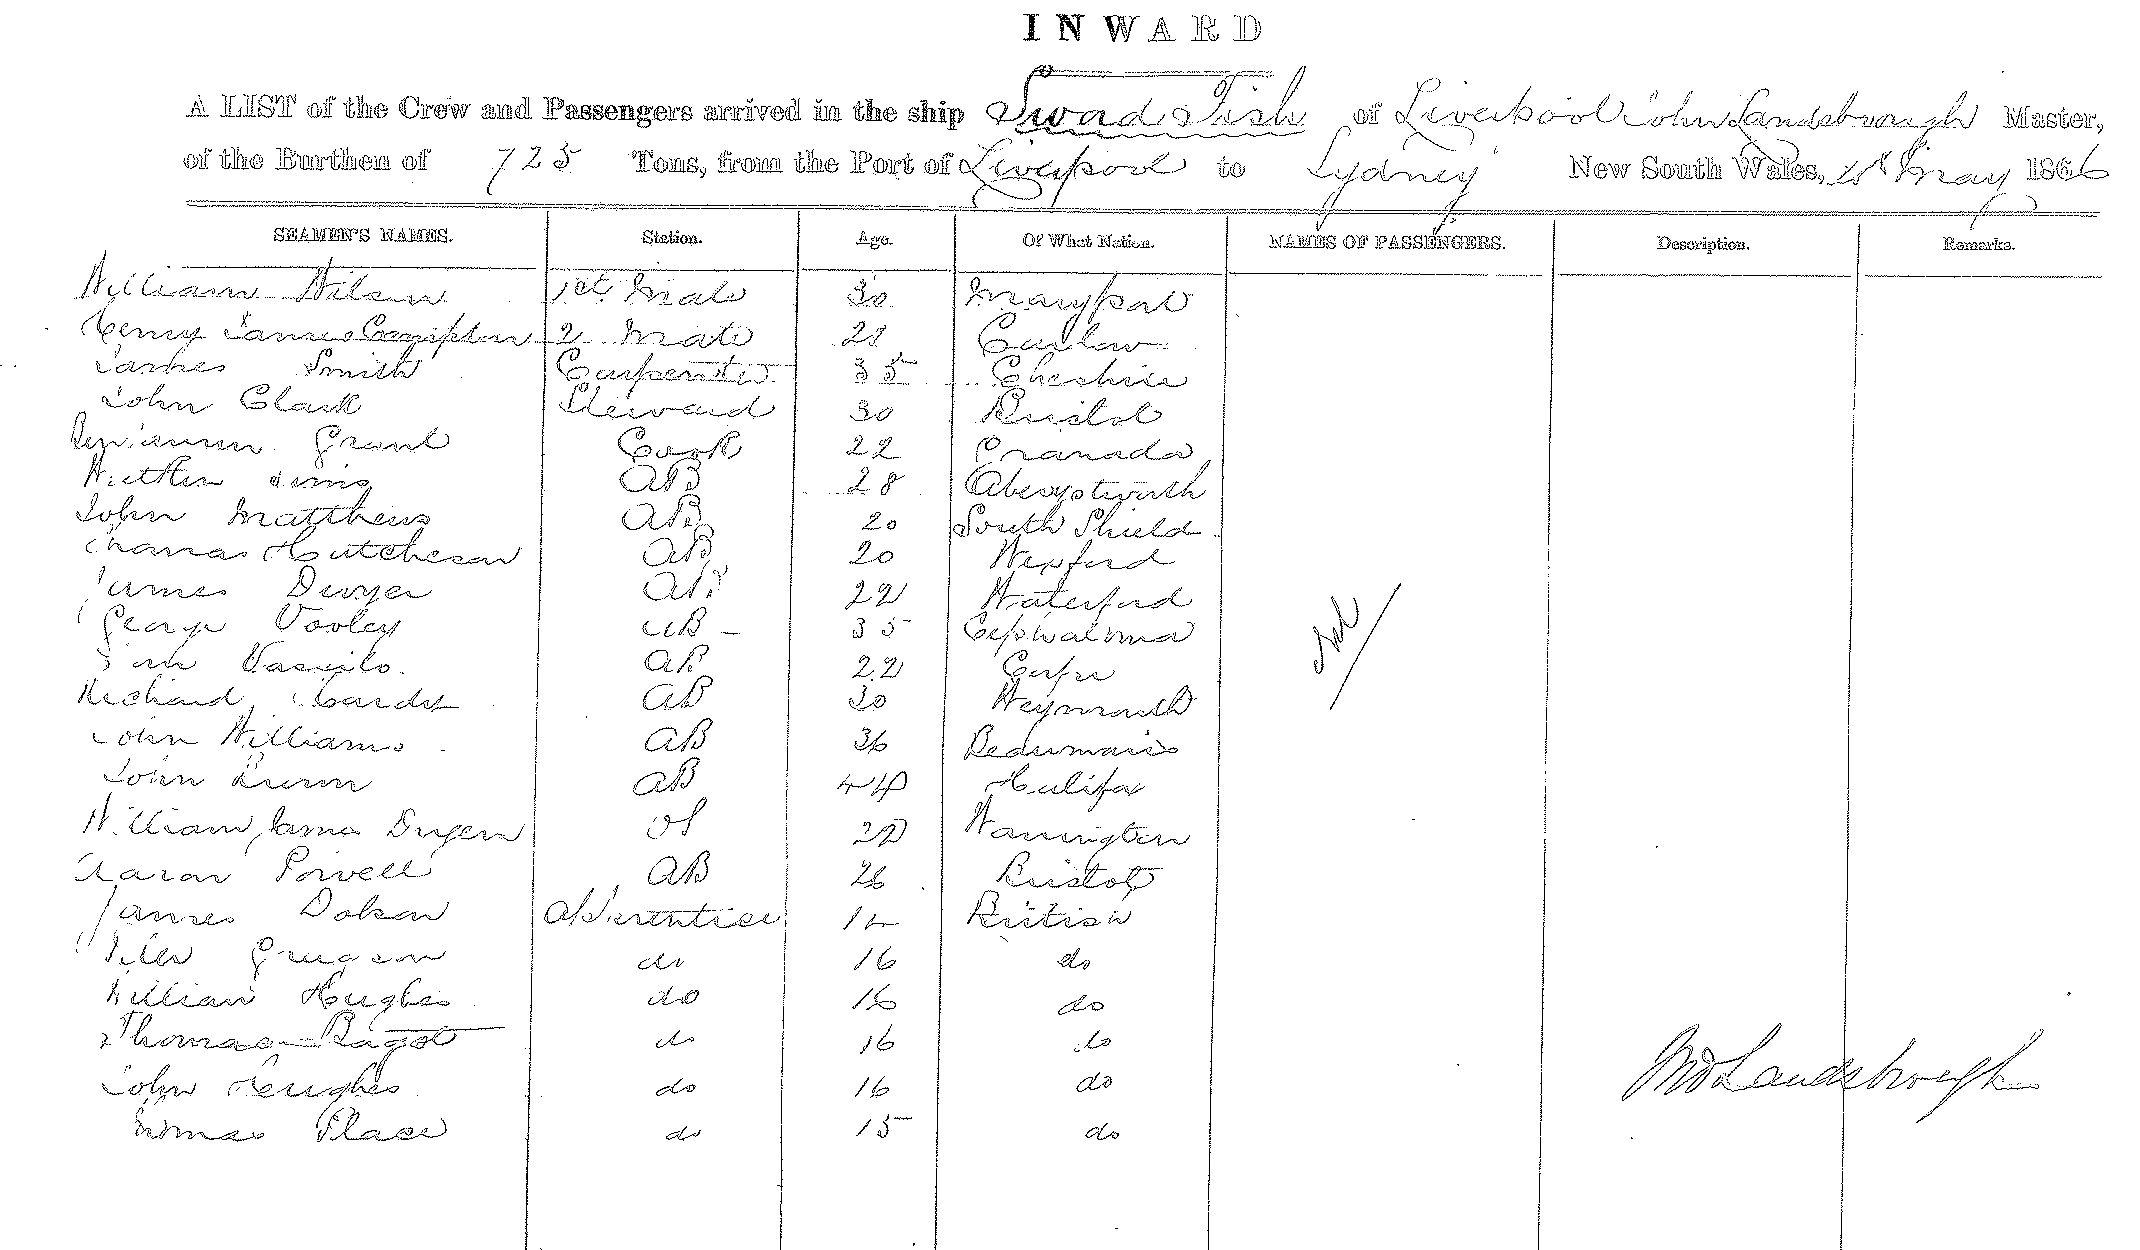 INWARD
A LIST of the Crew and Passengers arrived in the ship Sword Fish of Liverpool John Landsborough Master,
of the Burthen of 725 Tons, from the Port of Liverpool to Sydney New South Wales, May 1866
SEAMEN'S NAMES. Station. Age. Of What Nation. NAMES OF PASSENGERS. Description. Remarks.
William Wilson 1st Mate 30 Maryport
Henry James Campton 2 Mate Carlow
James Smith Carpenter 35 Cheshire
John Clark Steward 30 Bristol
Benjamin Grant Cook 22 Granada
AB 28 Aberystwith
John Matthews AB 20 South Shield
Thomas Hutcheson AB 20 Wexford
James Dwyer AB 22 Waterford
George Vooley AB 35 Cephalonia
Vasilo AB 22 Corfu
Richard Hardy AB 30 Weymouth
John Williams AB 36 Beaumaris
John AB 44 Halifax
William James OS Warrington
Aaron Powell AB 26 Bristol
James Dobson Apprentice British
Peter Gregson do 16 do
William Hughes do 16 do
Thomas Bagot do 16 do
John Hughes do 16 do
Thomas Place do 15 do
Jno Landsborough